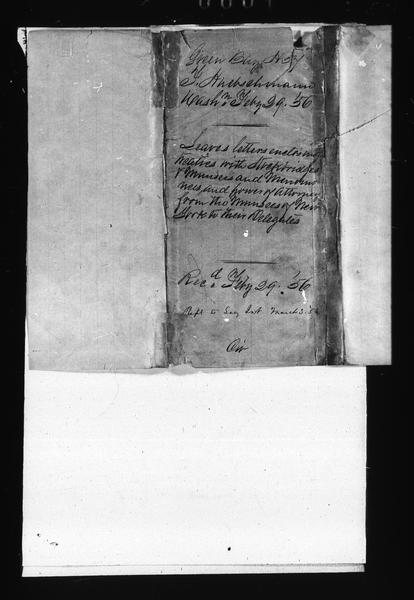 Green Bay
F. Huebschmann
Washn. Feby 29. '56
Leaves letters enclosing
treaties with Stockbridges
& Munsees and Menomo
nees and power of attorney
from the Munsees of New
York to their Delegates
Recd. Feby 29. '56
Rept to Sey Int March 3. 56